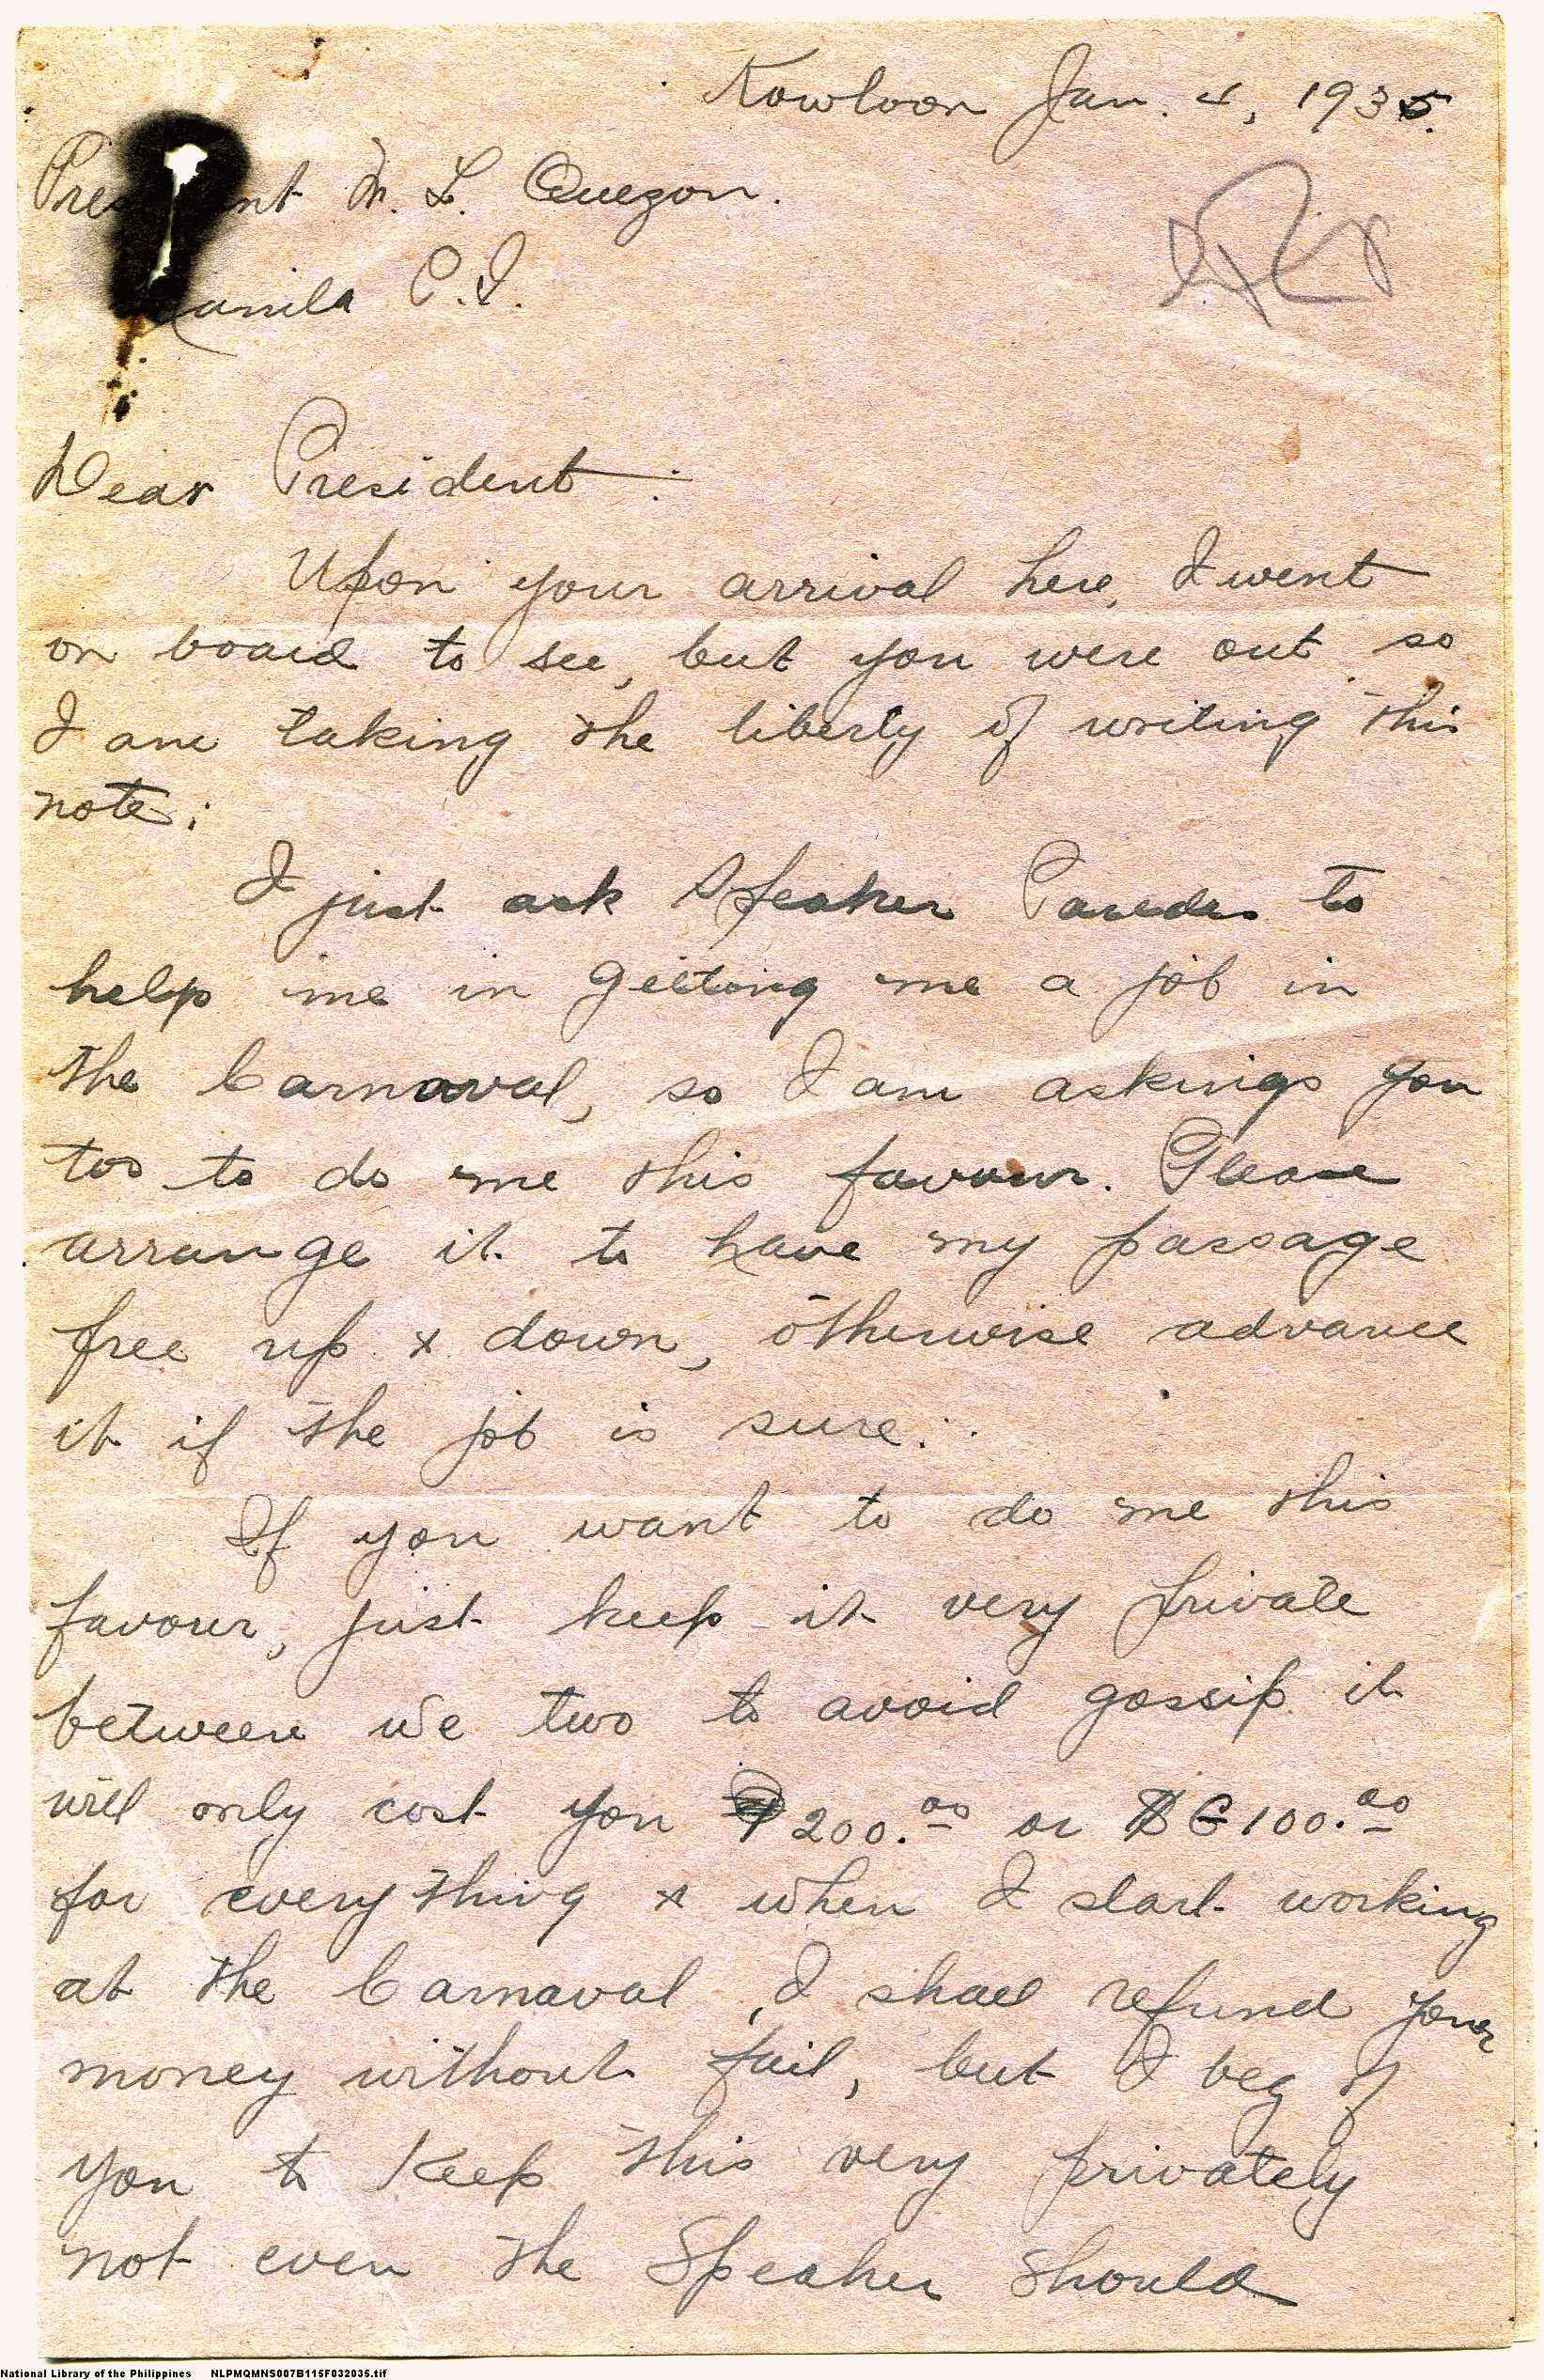 Kowloon Jan. 4, 1935.
Pres nt M. L. Quezon.
anila P.I.
Dear President:
Upon your arrival here, I went
on board to see, but you were out so
I am taking the liberty of writing this
note:
I just ask Speaker Paredes to
help me in getting me a job in
the Carnaval, so I am askings you
too to do me this favour. Please
arrange it to have my passage
free up & down, otherwise advance
it if the job is sure.
If you want to do me this
favour, just keep it very private
between we two to avoid gossip it
will only cost you ₱200.00 or 100.00
for everything & when I start working
at the Carnaval, I shall refund your
money without fail, but I beg of
you to keep this very privately
not even the Speaker should
National Library of the Philippines NLPMQMNS007B115F032035.tif